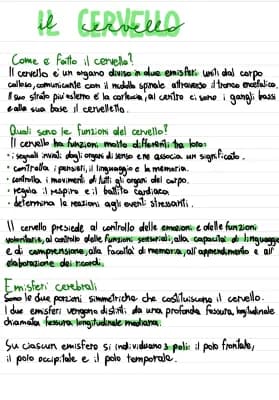 il CERVELLO
cervello
Come è fatto il cervello?
Il cervello è un organo diviso in due emisferi uniti dal corpo
calloso, comunicante con il midollo spinale attraverso il tronco encefalico.
Il suo strato più esterno è la corteccia, al centro ci sono i gangli basali
e alla sua base il cervelletto.
Quali sono le funzioni del cervello?
Il cervello ha funzioni molto differenti tra loro:
• i segnali inviati dagli organi di senso e ne associa un significato.
• controlla i pensieri, il linguaggio e la memoria.
• controlla i movimenti di tutti gli organi del corpo.
• regola il respiro e il battito cardiaco.
• determina le reazioni agli eventi stressanti.
Il cervello presiede al controllo delle emozioni e delle funzioni
volontarie, al controllo delle funzioni sensoriali, alla capacità di linguaggio
e di comprensione, alla facoltà di memoria, all'apprendimento e all'
elaborazione dei ricordi.
Emisferi cerebrali
Sono le due porzioni simmetriche che costituiscono il cervello.
I due emisferi vengono distinti da una profonda fessura longitudinale
chiamata fessura longitudinale mediana.
Su ciascun emisfero si individuano 3 poli: il polo frontale,
il polo occipitale e il polo temporale.